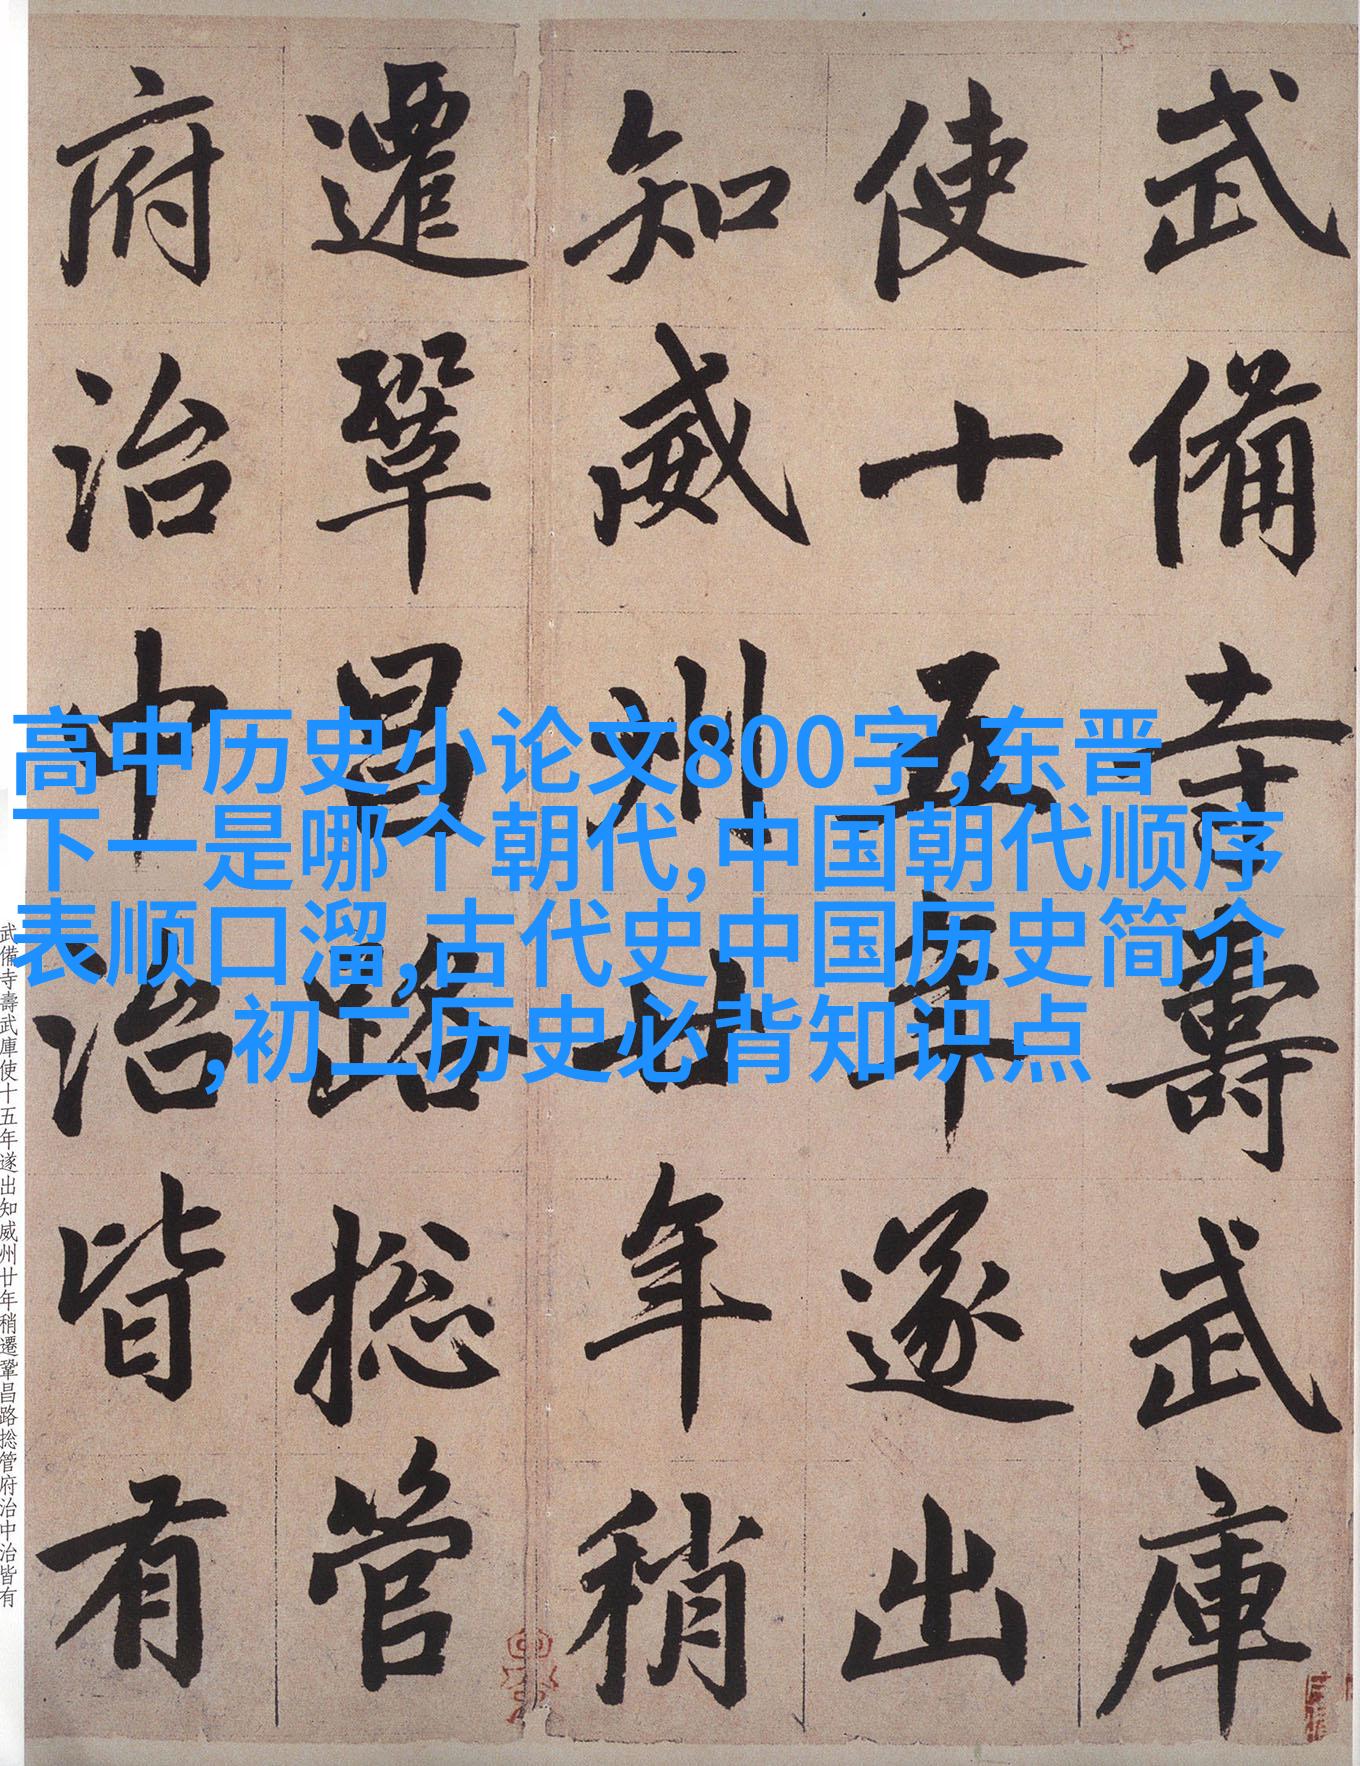 武備寺壽武庫
使十五年遂出
知威州廿年稍
遷鞏昌路捴管
府治中治皆有
武備寺壽武庫使十五年遂出知威州廿年稍遷鞏昌路捴管府治中治皆有
高中历史小论文800字,东晋
下一是哪个朝代,中国朝代顺序
表顺口溜,古代史中国历史简介
,初二历史必背知识点